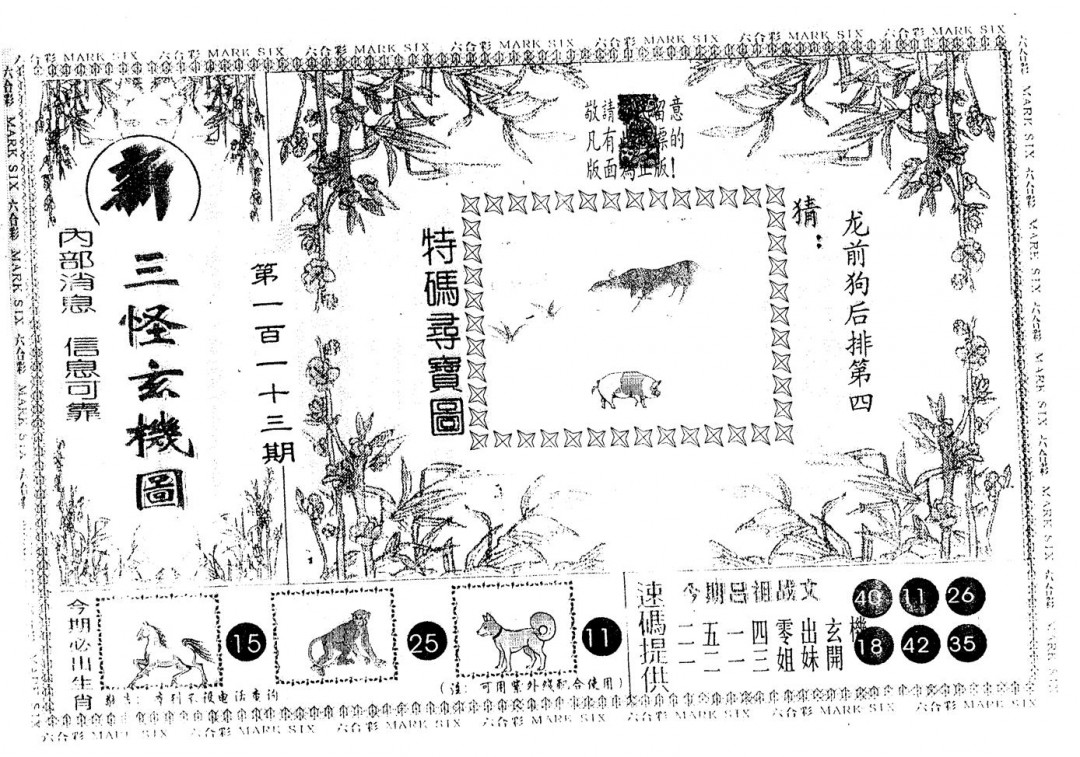 六合彩 MARK SIX 六合彩 MARK SIX 六合彩 MARK SIX 六合彩 MARK SIX 六合彩 MARK SIX 六合彩 MARK SIX 六合彩 MARK SIX
新
三怪玄機圖
內部消息 信息可靠
第一百一十三期
敬請留意
凡有標的
版面為正版!
特碼尋寶圖
猜:
龙前狗后排第四
今期必出生肖
15
25
11
(注: 可用紫外线配合使用)
速碼提供
今期吕祖战文
二五一四零出玄機
一二一三姐妹開
40 11 26
18 42 35
六合彩 MARK SIX 六合彩 MARK SIX 六合彩 MARK SIX 六合彩 MARK SIX 六合彩 MARK SIX 六合彩 MARK SIX 六合彩 MARK SIX